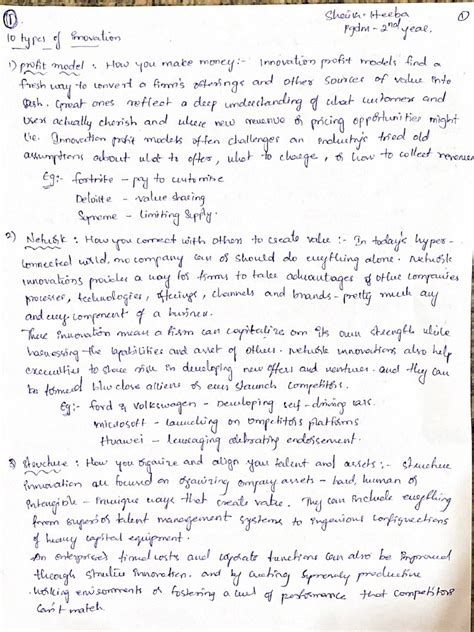 Shaikh Heeba ①
Pgdm - 2nd year.
10 types of Innovation
1) profit model : How you make money :- Innovation profit models find a
fresh way to convert a firm's offerings and other sources of value into
cash. Great ones reflect a deep understanding of what customers and
users actually cherish and where new revenue or pricing opportunities might
lie. Innovation profit models often challenges an industry's tired old
assumptions about what to offer, what to charge, or how to collect revenues
Eg:- fortnite - pay to customise
Deloitte - value sharing
Supreme - limiting supply.
2) Network : How you connect with others to create value :- In today's hyper-
connected world, no company can or should do everything alone. Network
innovations provides a way for firms to take advantages of other companies
processes, technologies, offerings, channels and brands - pretty much any
and every component of a business.
These innovation mean a firm can capitalize on its own strength while
harnessing the capabilities and asset of others. Network innovations also help
executives to share risk in developing new offers and ventures. and they can
be formed b/w close allies or even staunch competitors.
Eg:- ford & volkswagen - Developing self-driving cars.
microsoft - launching on competitors platforms
Huawei - leveraging celebrating endorsement.
3) Structure : How you organize and align your talent and assets :- structure
innovation are focused on organizing company assets - hard, human or
intangible - in unique ways that create value. They can include everything
from superior talent management systems to ingenious configurations
of heavy capital equipment.
An enterprises fixed costs and corporate functions can also be improved
through structure innovation. and by creating supremely productive
working environments or fostering a level of performance that competitors
can't match.